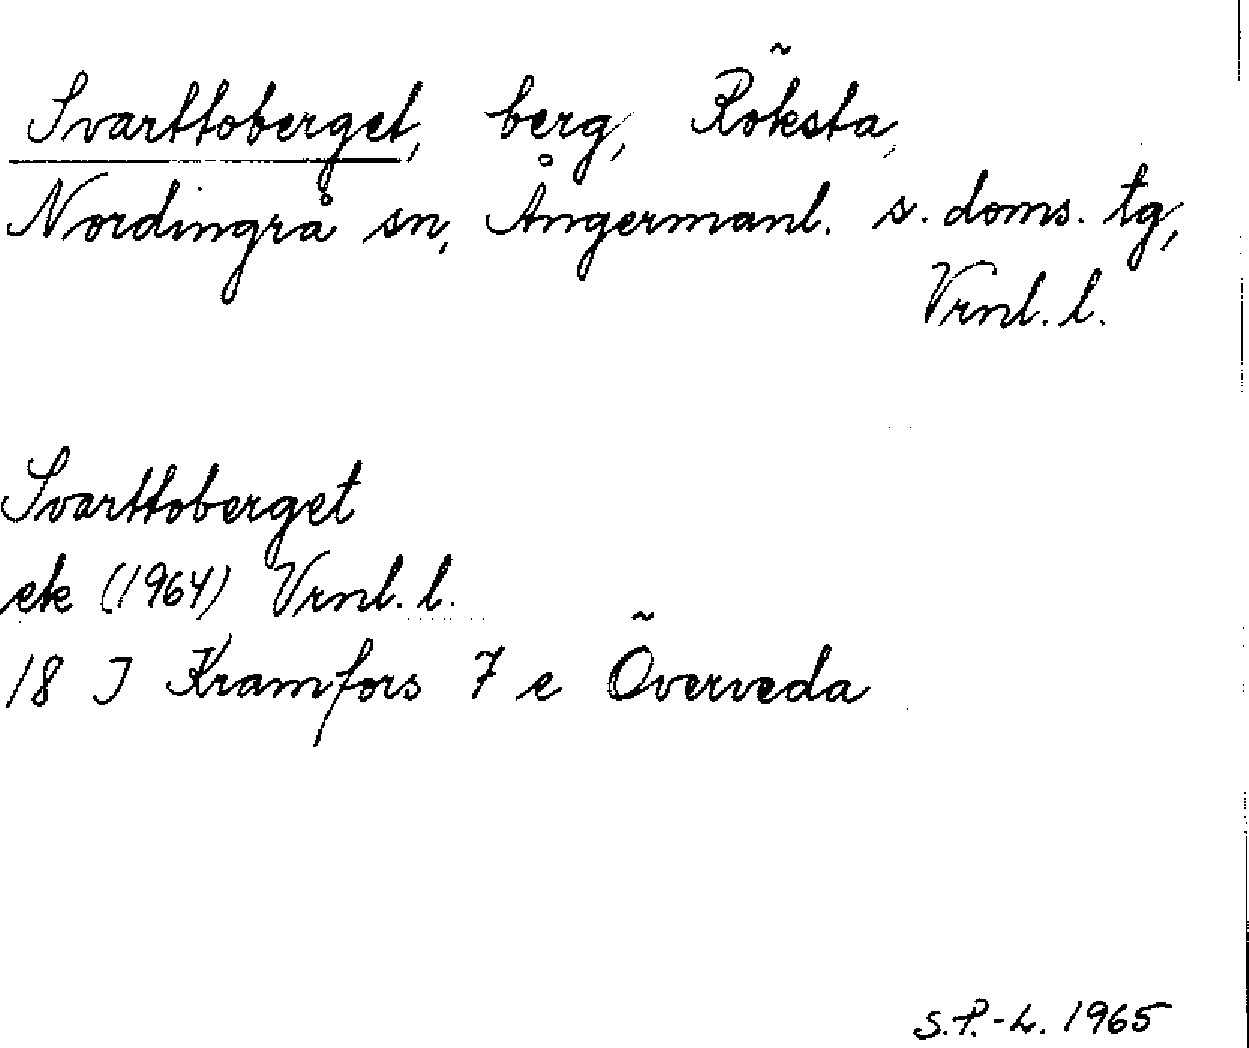 Svarttoberget, berg, Röksta,
Nordingrå sn, Ångermanl. s. doms. tg,
Vrnl. l.
Svarttoberget
ek (1964) Vrnl. l.
18 J Kramfors 7 e Överveda
S.P.-L. 1965